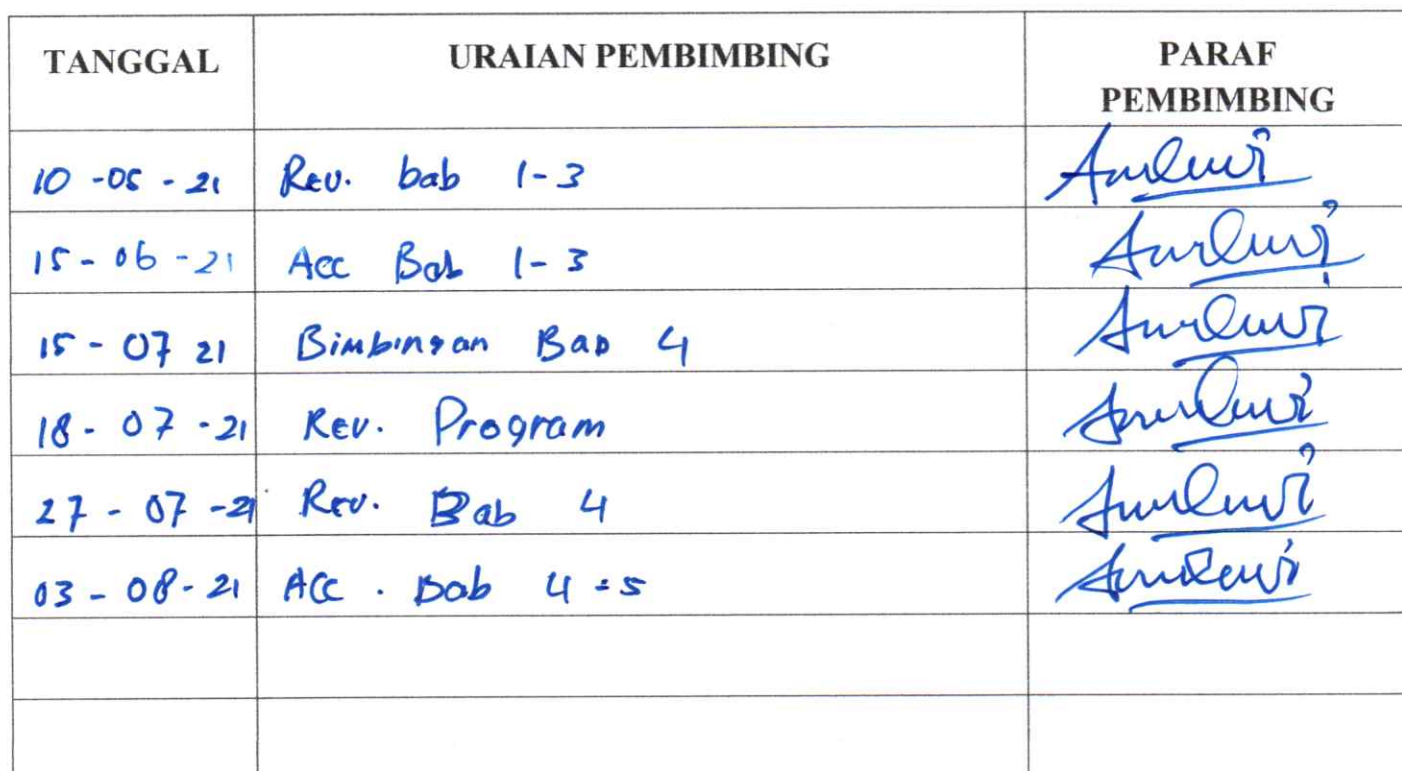 TANGGAL URAIAN PEMBIMBING PARAF
PEMBIMBING
10 -05 - 21 Rev. bab 1-3
15 - 06 - 21 Acc Bab 1-3
15 - 07 21 Bimbingan Bab 4
18 - 07 - 21 Rev. Program
27 - 07 - 21 Rev. Bab 4
03 - 08 - 21 ACC . Bab 4 - 5